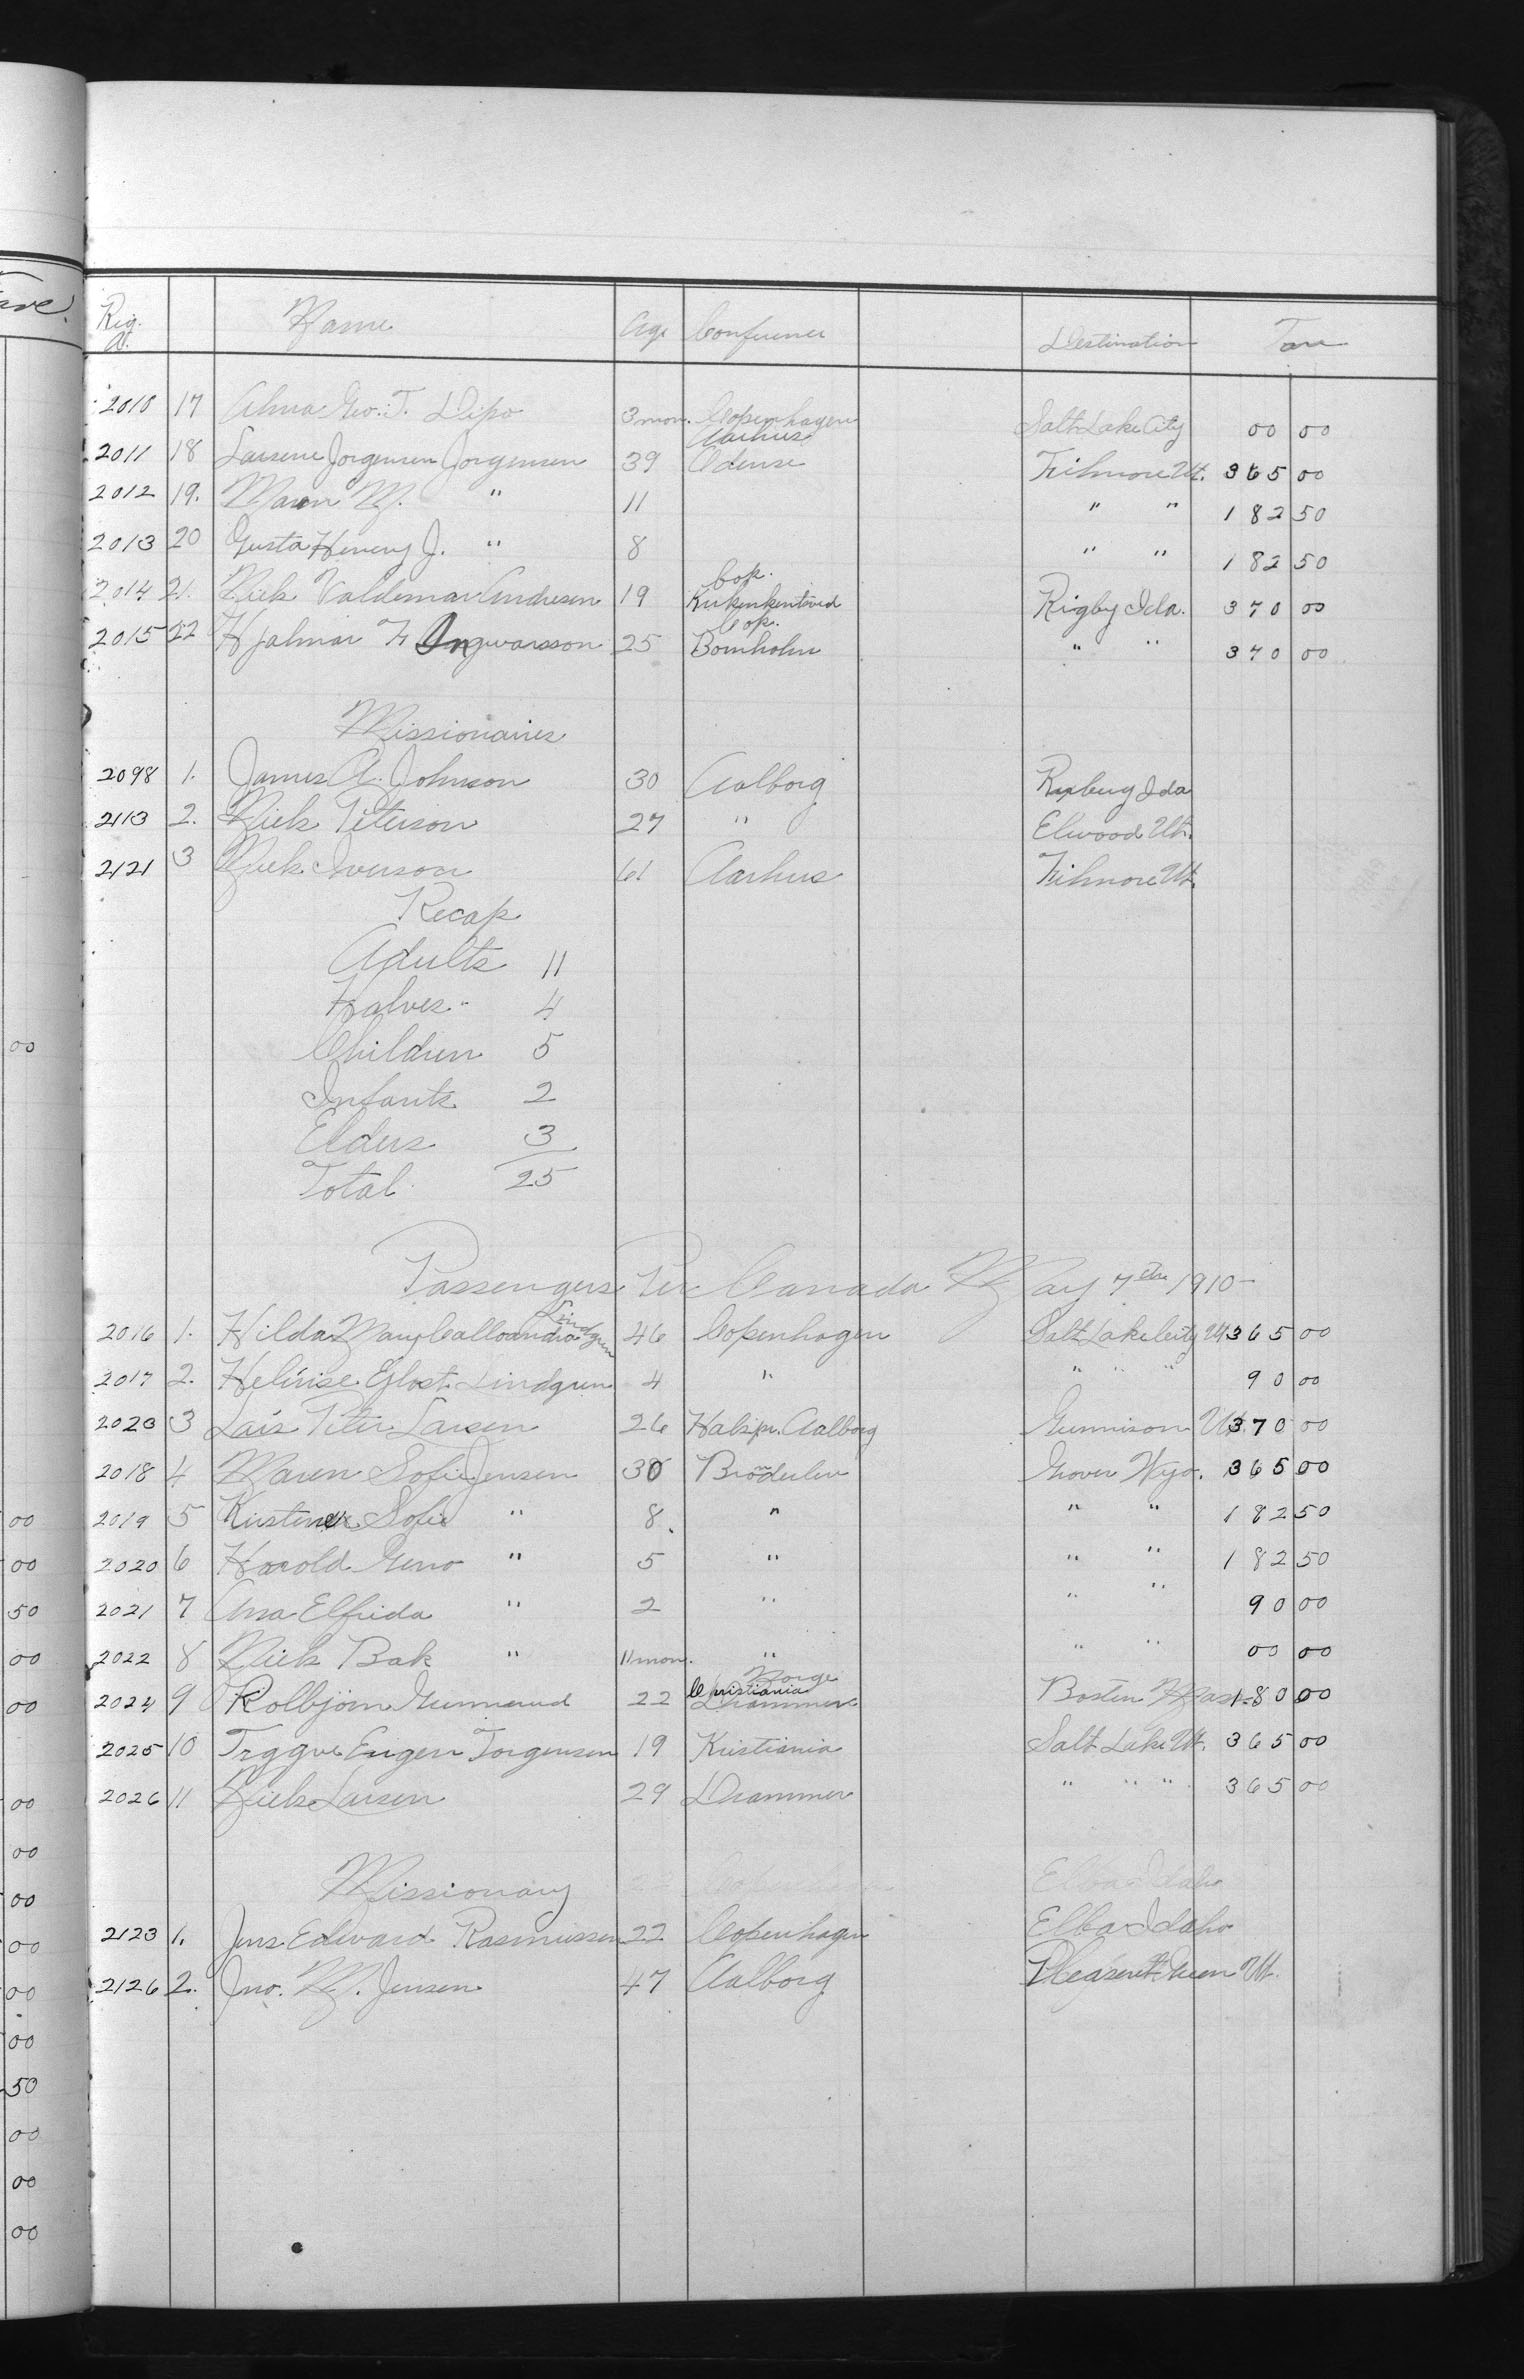 Fare.
Reg. No. Name Age Conference Destination Fare
2010 17 Alma Geo. T. Dipo 3 mon. Copenhagen Salt Lake City 00 00
2011 18 Larsene Jorgensen Jorgensen 39 Aarhus Odense Filmore Ut. 365 00
2012 19. Maren M. " 11 " " 182 50
2013 20 Gusta Henery J. " 8 " " 182 50
2014 21. Niels Valdemar Andresen 19 Cop. Rigby Ida. 370 00
2015 22 Hjalmar F Ingwarsson 25 Cop. Bornholm " " 370 00
Missionaries
2098 1. James A. Johnson 30 Aalborg Rexburg Ida
2113 2. Niels Peterson 27 " Elwood Ut.
2121 3 Niels Iverson 61 Aarhus Filmore Ut.
Recap
Adults 11
Halves " 4
Children 5
Infants 2
Elders 3
Total 25
Passengers Per Canada May 7th 1910-
2016 1. Hilda Mary Lindgren 46 Copenhagen Salt Lake City Ut 365 00
2017 2. Lindgren 4 " " " " 90 00
2023 3 Lars Peter Larsen 26 Aalborg Gunnison Ut. 370 00
2018 4 Maren Sofie Jensen 30 Bronderlev Grover Wyo. 365 00
2019 5 Kirstine Sofie " 8. " " " 182 50
2020 6 Harold Geno " 5 " " " 182 50
2021 7 Ana Elfrida " 2 " " " 90 00
2022 8 Niels Bak " 11 mon. " " " 00 00
2024 9 Kolbjorn Gunnerud 22 Norge Christiania Drammen Boston Mass 180 00
2025 10 Trggve Eugen Torgensen 19 Kristiania Salt Lake Ut. 365 00
2026 11 Niels Larsen 29 Drammen " " " 365 00
Missionary Elba Idaho
2123 1. Jens Edward Rasmussen 22 Copenhagen Elba Idaho
2126 2. Jno. M. Jensen 47 Aalborg Pleasent Green Ut.